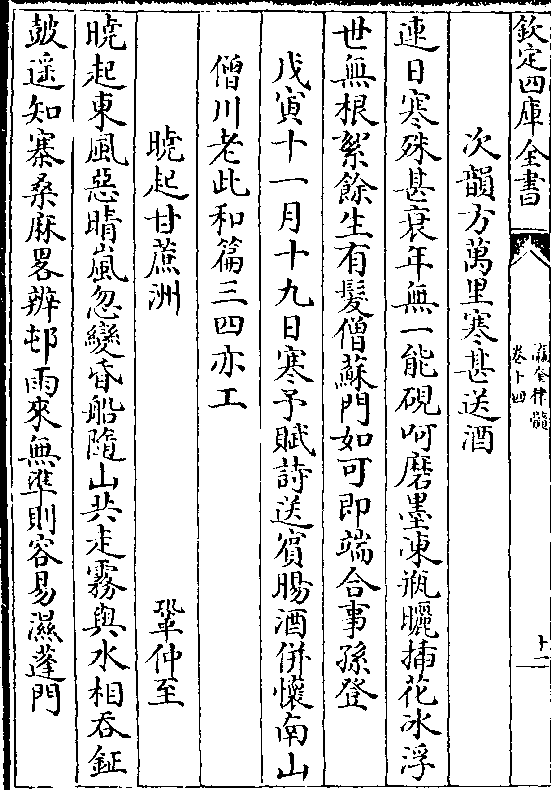 欽定四庫全書
瀛奎律髓
卷十四
十二
次韻方萬里寒甚送酒
連日寒殊甚衰年無一能硯呵磨墨凍瓶曬挿花冰浮
世無根絮餘生有髮僧蘇門如可即端合事孫登
戊寅十一月十九日寒予賦詩送賓暘酒併懷南山
僧川老此和篇三四亦工
曉起甘蔗洲　鞏仲至
曉起東風惡晴嵐忽變昏船隨山共走霧與水相吞鉦
皷遥知寨桑麻畧辨邨雨來無準則容易濕蓬門